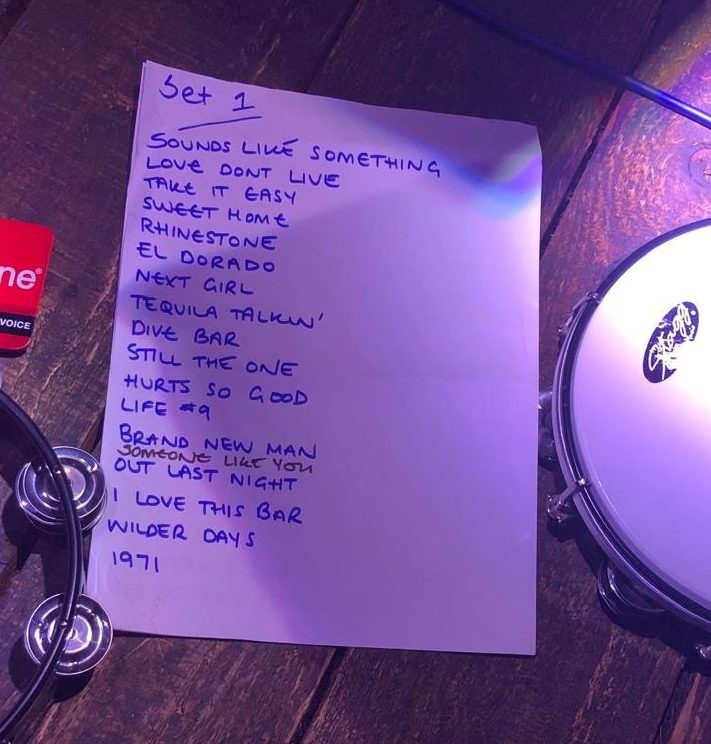 Set 1
SOUNDS LIKE SOMETHING
LOVE DONT LIVE
TAKE IT EASY
SWEET HOME
RHINESTONE
EL DORADO
NEXT GIRL
TEQUILA TALKIN'
DIVE BAR
STILL THE ONE
HURTS SO GOOD
LIFE #9
BRAND NEW MAN
SOMEONE LIKE YOU
OUT LAST NIGHT
I LOVE THIS BAR
WILDER DAYS
1971
ne®
VOICE